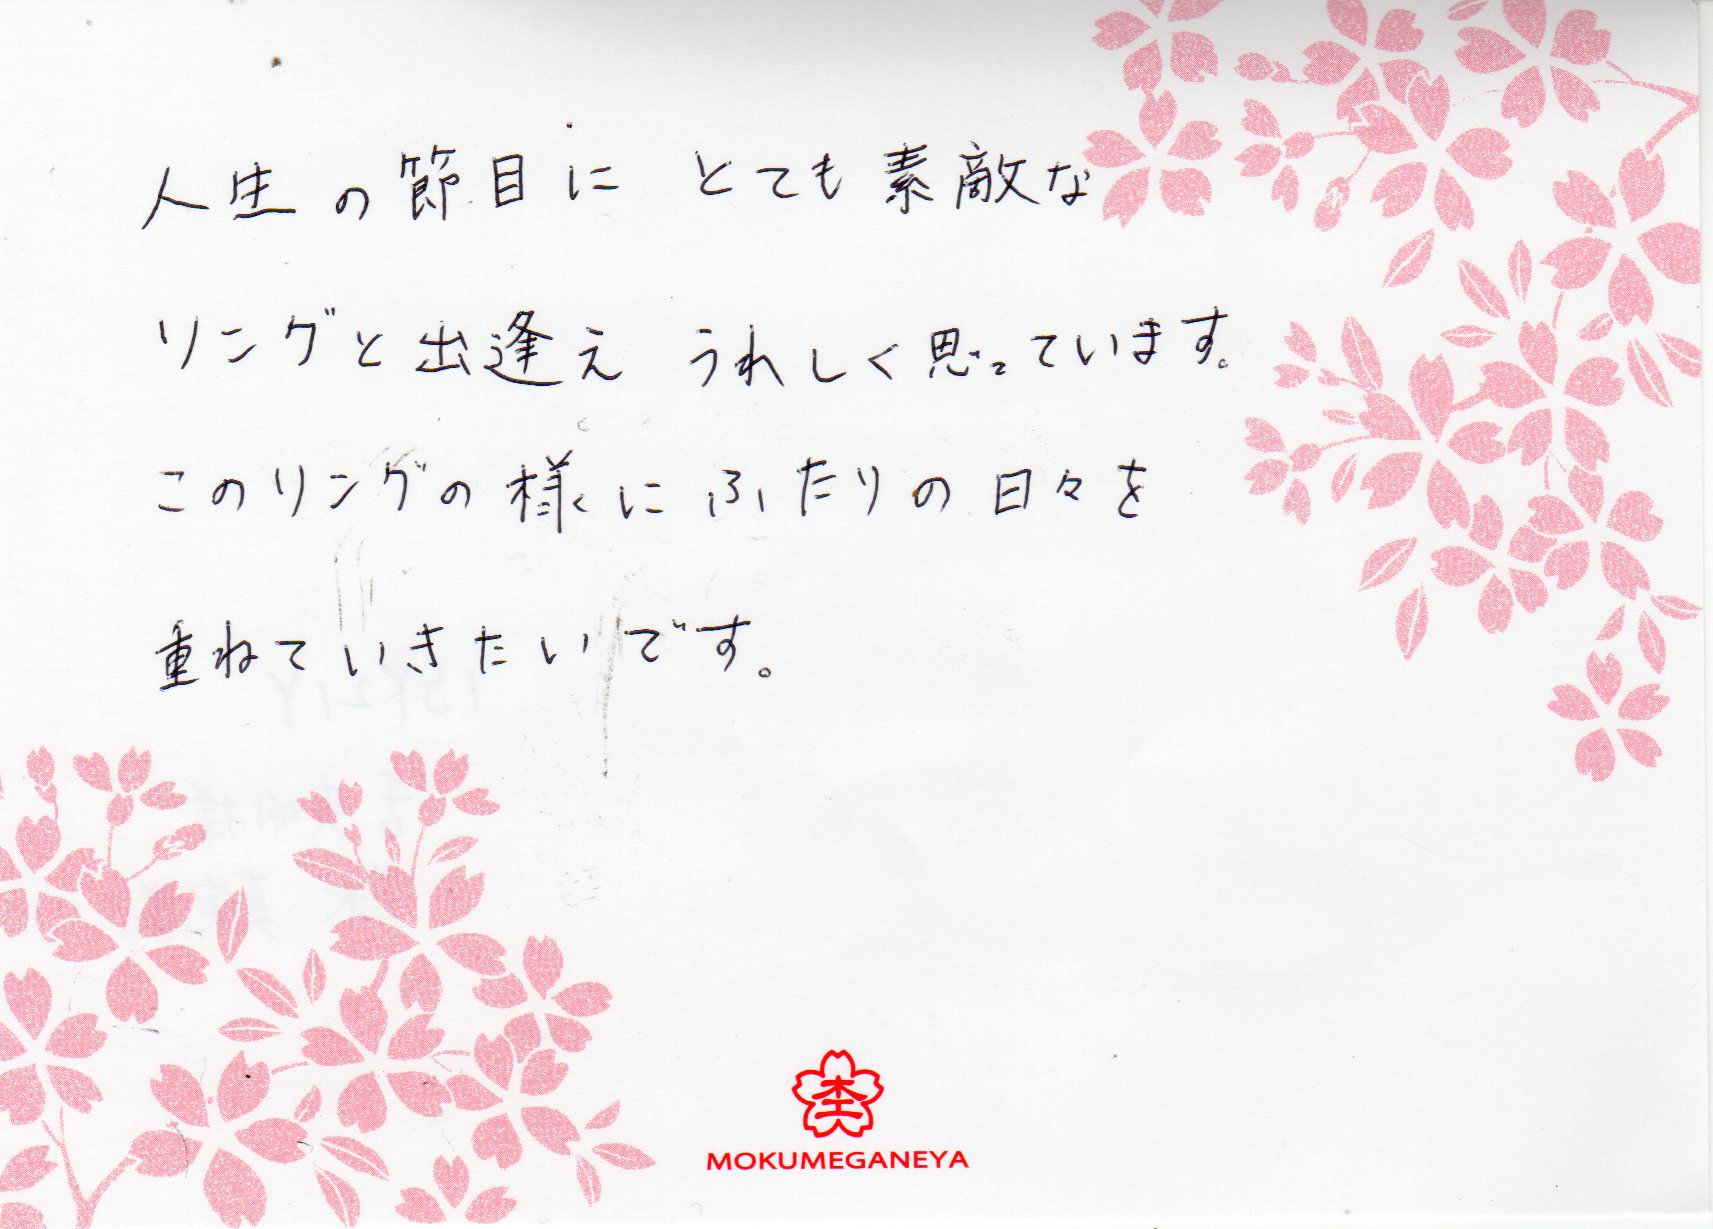 人生の節目に とても素敵な
リングと出逢え うれしく思っています。
このリングの様に ふたりの日々を
重ねていきたいです。
MOKUMEGANEYA